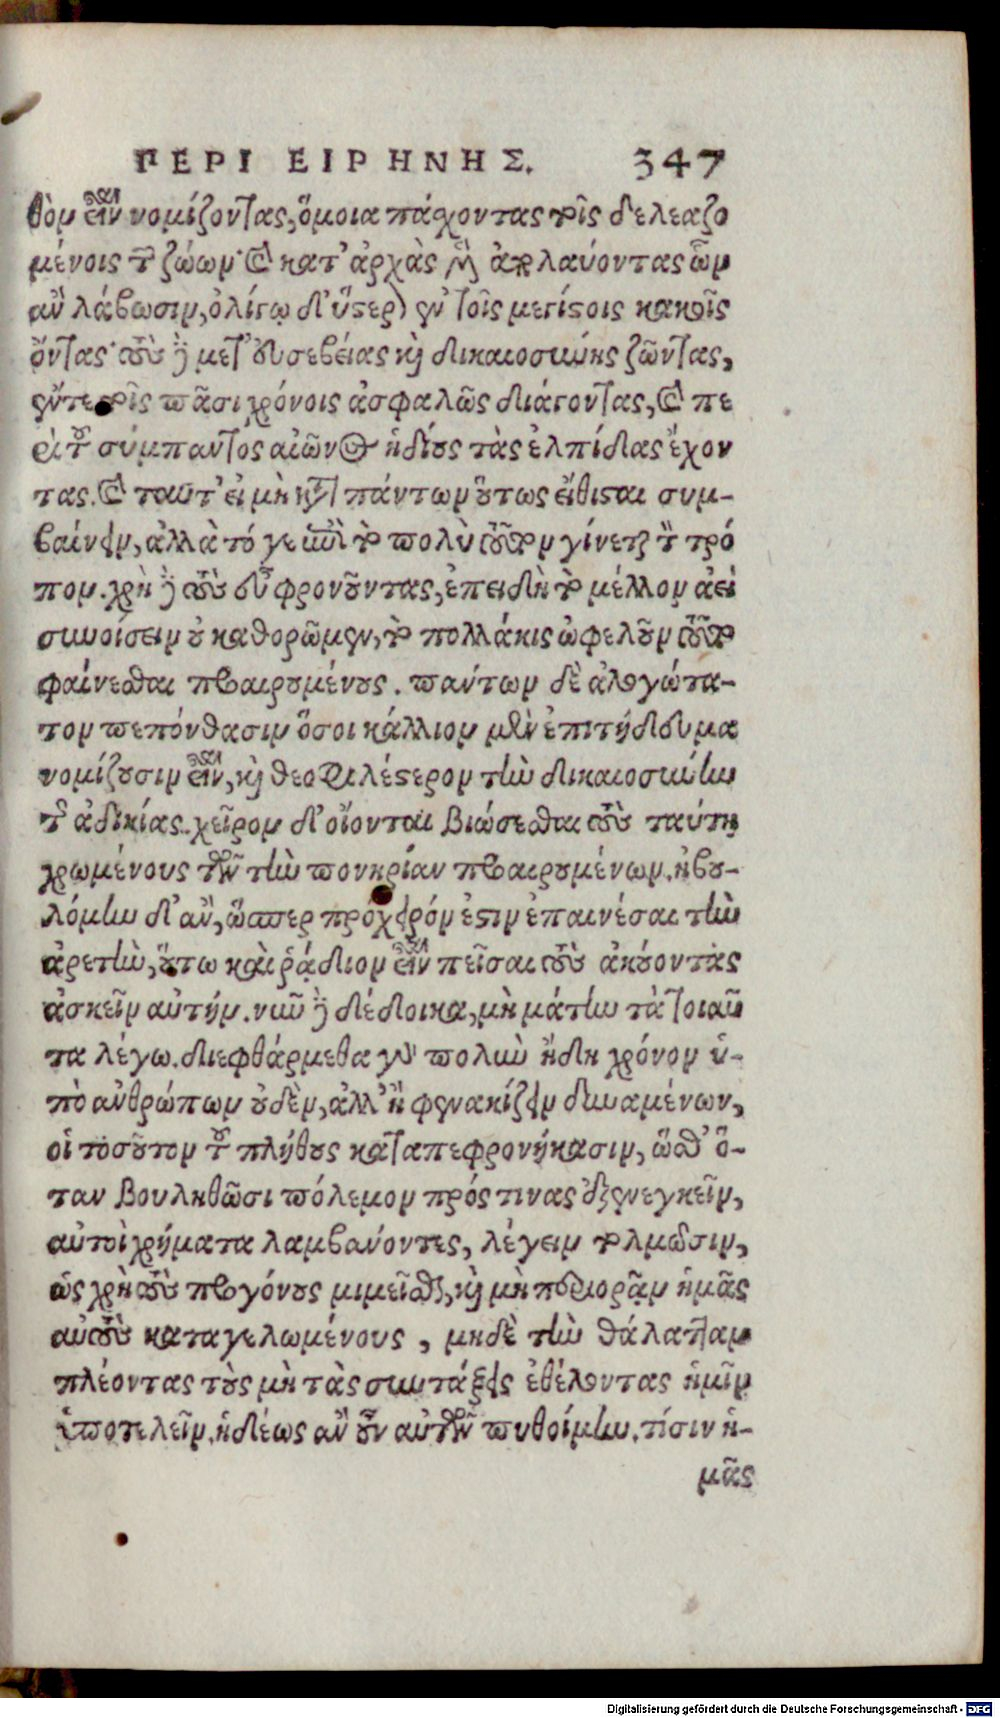 ΠΕΡΙ ΕΙΡΗΝΗΣ. 347
θὸν εἶναι νομίζοντας, ὅμοια πάσχοντας τοῖς δελεαζο
μένοις τῶν ζώων· καὶ κατ' ἀρχὰς μὲν ἀπολαύοντας ὧν
ἂν λάβωσιν, ὀλίγῳ δ' ὕστερον ἐν τοῖς μεγίστοις κακοῖς
ὄντας· τοὺς δὲ μετ' εὐσεβείας καὶ δικαιοσύνης ζῶντας,
ἔν τε τοῖς πᾶσι χρόνοις ἀσφαλῶς διάγοντας, καὶ πε
ρὶ τοῦ σύμπαντος αἰῶνος ἡδίους τὰς ἐλπίδας ἔχον
τας. καὶ ταῦτ' εἰ μὴ κατὰ πάντων οὕτως εἴθισται συμ-
βαίνειν, ἀλλὰ τό γε ὡς ἐπὶ τὸ πολὺ τοῦτον γίνεται τὸν τρό
πον. χρὴ δὲ τοὺς εὖ φρονοῦντας, ἐπειδὴ τὸ μέλλον ἀεὶ
συνοίσειν οὐ καθορῶμεν, τὸ πολλάκις ὠφελοῦν τοῦτο
φαίνεσθαι προαιρουμένους. πάντων δὲ ἀλογώτα-
τον πεπόνθασιν ὅσοι κάλλιον μὲν ἐπιτήδευμα
νομίζουσιν εἶναι, καὶ θεοφιλέστερον τὴν δικαιοσύνην
τῆς ἀδικίας. χεῖρον δ' οἴονται βιώσεσθαι τοὺς ταύτῃ
χρωμένους τῶν τὴν πονηρίαν προαιρουμένων. ἠβου-
λόμην δ' ἂν, ὥσπερ πρόχειρόν ἐστιν ἐπαινέσαι τὴν
ἀρετὴν, οὕτω καὶ ῥᾴδιον εἶναι πεῖσαι τοὺς ἀκούοντας
ἀσκεῖν αὐτήν. νῦν δὲ δέδοικα, μὴ μάτην τὰ τοιαῦ
τα λέγω. διεφθάρμεθα γὰρ πολὺν ἤδη χρόνον ὑ-
πὸ ἀνθρώπων οὐδὲν, ἀλλ' ἢ φενακίζειν δυναμένων,
οἳ τοσοῦτον τοῦ πλήθους καταπεφρονήκασιν, ὥσθ' ὅ-
ταν βουληθῶσι πόλεμον πρός τινας ἐξενεγκεῖν,
αὐτοὶ χρήματα λαμβάνοντες, λέγειν τολμῶσιν,
ὡς χρὴ τοὺς προγόνους μιμεῖσθαι, καὶ μὴ περιορᾷν ἡμᾶς
αὐτοὺς καταγελωμένους, μηδὲ τὴν θάλατταν
πλέοντας τοὺς μὴ τὰς συντάξεις ἐθέλοντας ἡμῖν
ὑποτελεῖν. ἡδέως ἂν οὖν αὐτῶν πυθοίμην. τίσιν ἡ-
μᾶς
Digitalisierung gefördert durch die Deutsche Forschungsgemeinschaft - DFG